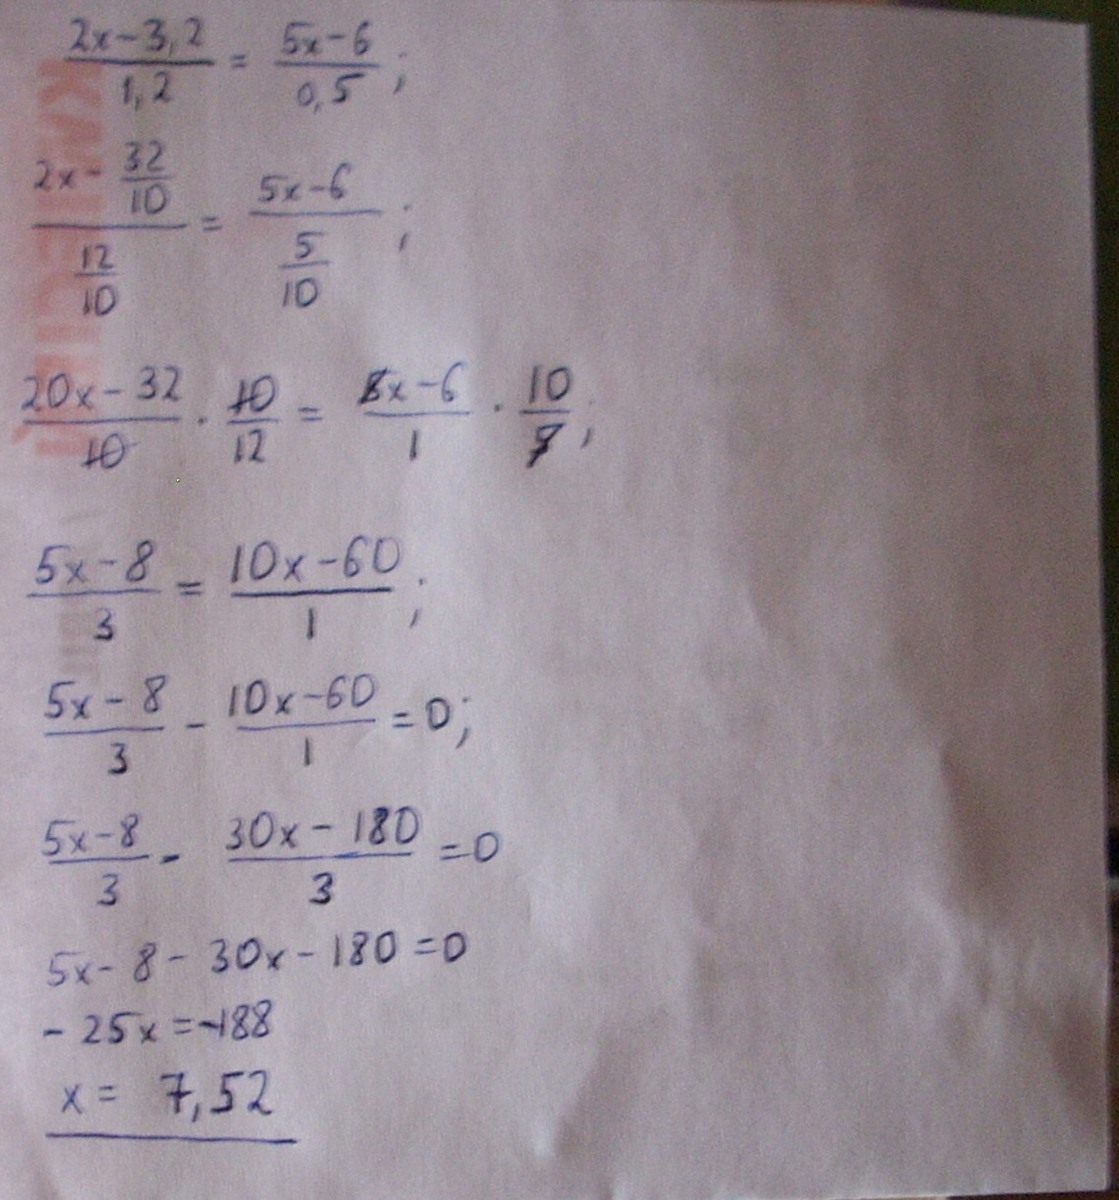 (2x-3,2)/(1,2) = (5x-6)/(0,5);
(2x - 32/10)/(12/10) = (5x-6)/(5/10);
(20x-32)/10 · 10/12 = (5x-6)/1 · 10/5;
(5x-8)/3 = (10x-60)/1;
(5x-8)/3 - (10x-60)/1 = 0;
(5x-8)/3 - (30x-180)/3 = 0
5x-8-30x-180=0
-25x=-188
x= 7,52